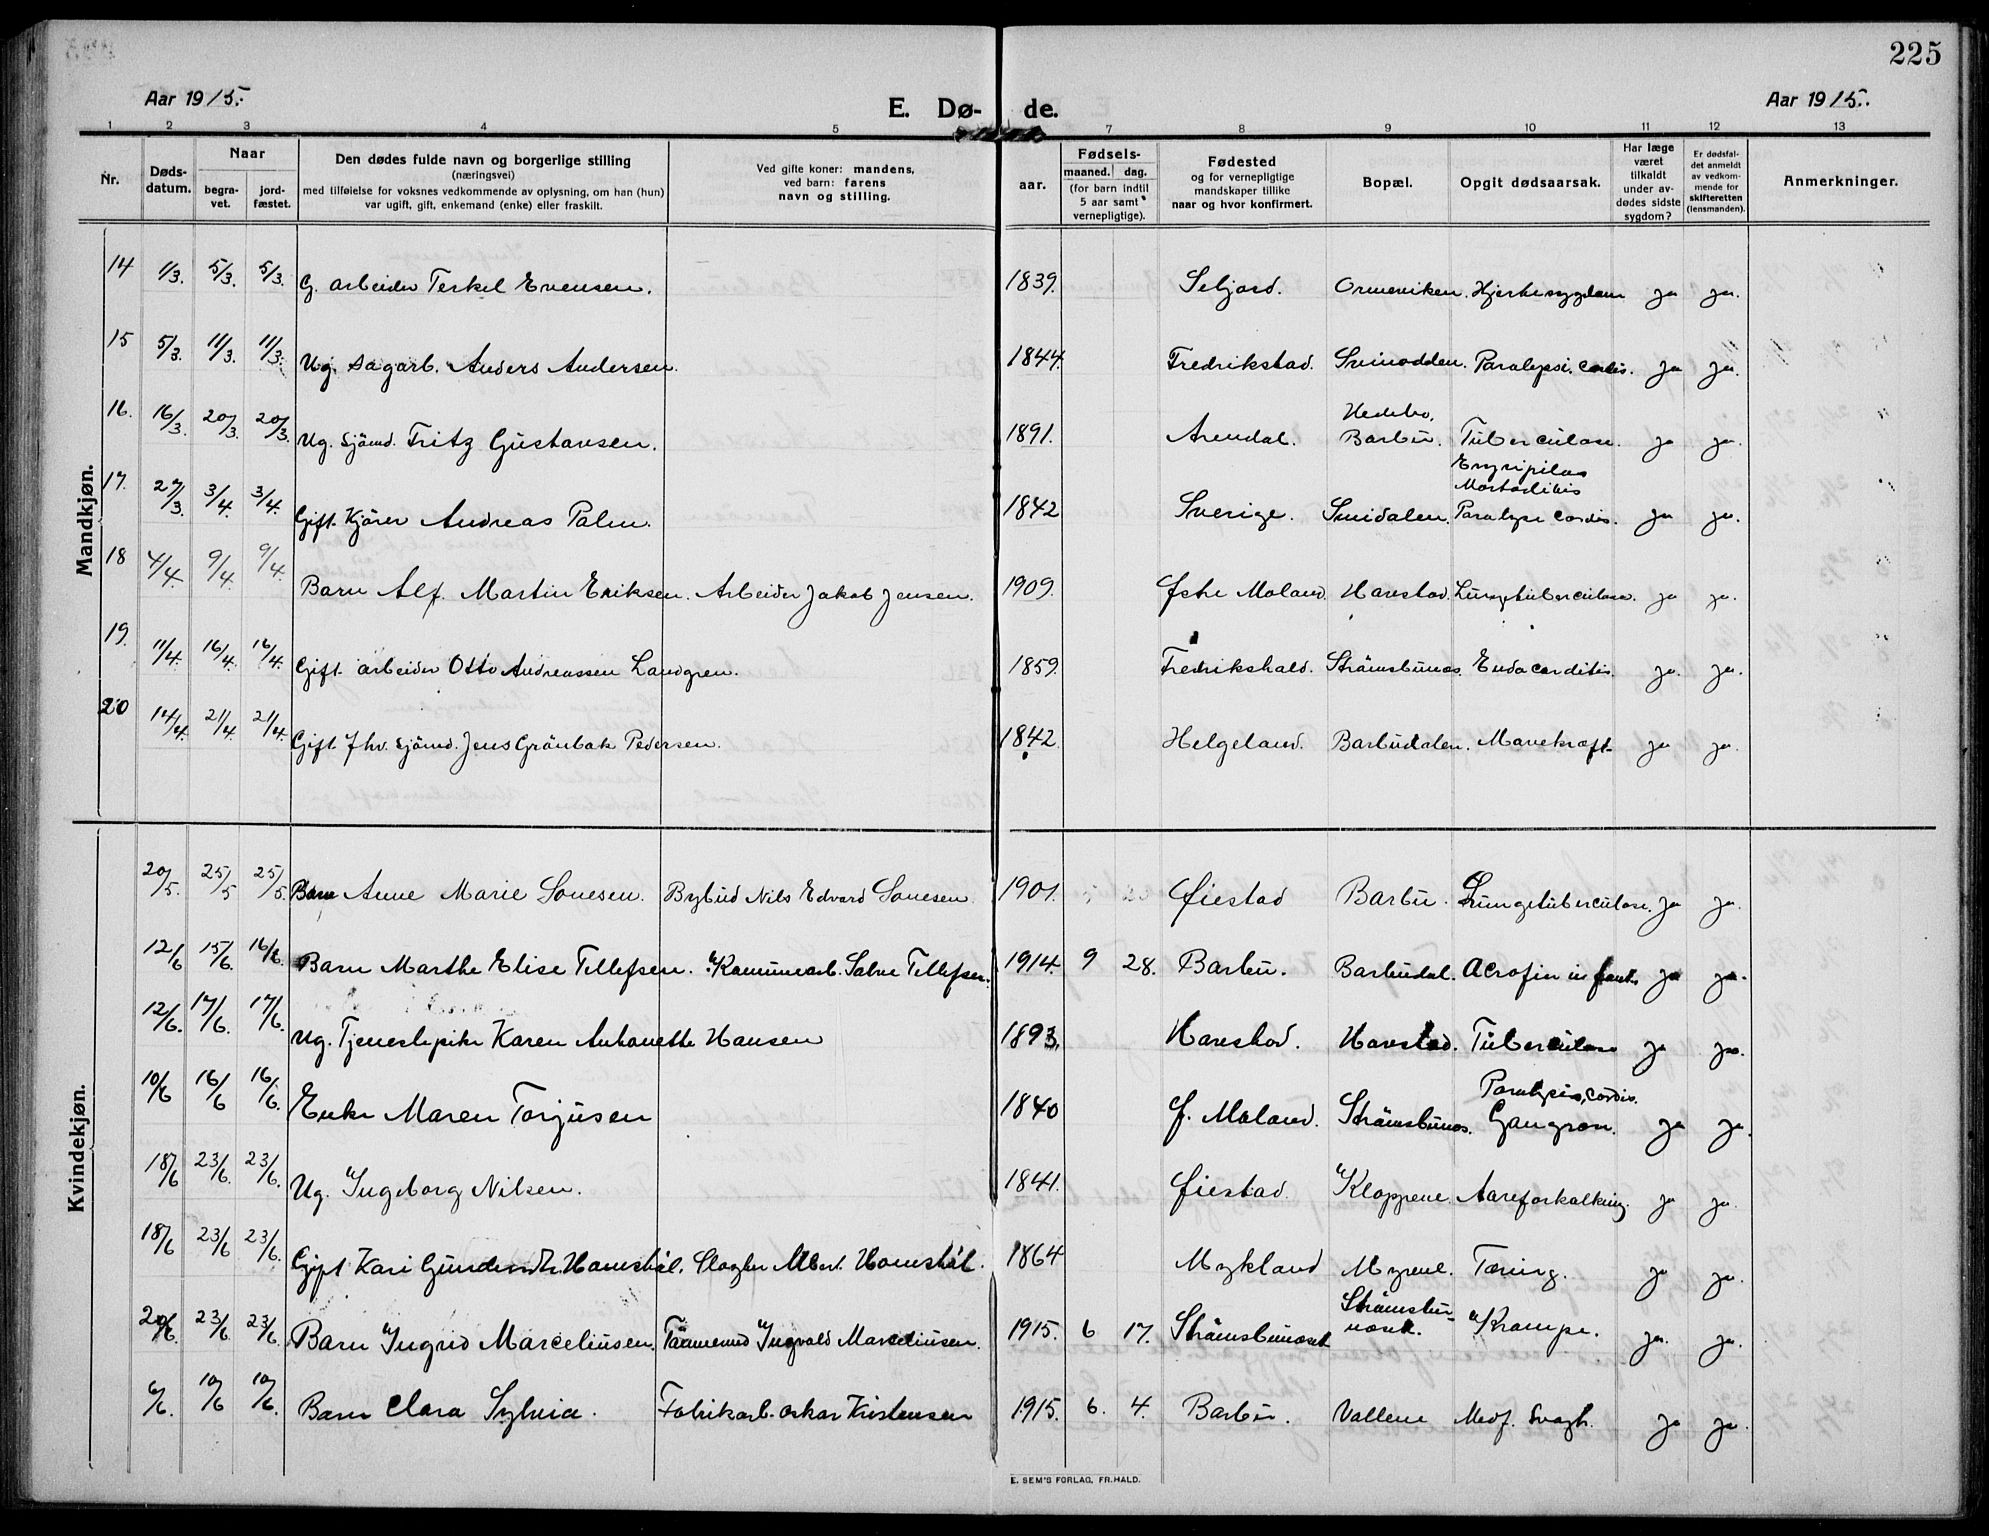 225
Aar 1915.
E. Dø-
de.
Aar 1915.
1 2 3 4 5 7 8 9 10 11 12 13
Nr.
Døds-
datum.
Naar
begra-
vet.
jord-
fæstet.
Den dødes fulde navn og borgerlige stilling
(næringsvei)
med tilføielse for voksnes vedkommende av oplysning, om han (hun)
var ugift, gift, enkemand (enke) eller fraskilt.
Ved gifte koner: mandens,
ved barn: farens
navn og stilling.
aar.
Fødsels-
maaned. dag.
(for barn indtil
5 aar samt
vernepligtige).
Fødested
og for vernepligtige
mandskaper tillike
naar og hvor konfirmert.
Bopæl.
Opgit dødsaarsak.
Har læge
været
tilkaldt
under av-
dødes sidste
sygdom?
Er dødsfal-
det anmeldt
av vedkom-
mende for
skifteretten
(lensmanden).
Anmerkninger.
Mandkjøn.
14 1/3. 5/3. 5/3. G. arbeider Terkel Evensen. 1839. Seljord. Ormeviken. Hjertesygdom ja ja.
15 5/3. 11/3. 11/3. Ug. Sagarb. Anders Andersen. 1844. Fredrikstad. Svinodden. Paralysi. Cordis. ja ja.
16. 16/3. 20/3. 20/3. Ug. Sjömd. Fritz Gustavsen. 1891. Arendal. Hedebo, Barbu. Tuberculose. ja ja.
17. 27/3. 3/4. 3/4. Gift. Kjörer Andreas Palm. 1842 Sverige. Smidalen. Erysipilas Mastoiditis Paralyse Cordis. ja ja.
18 4/4. 9/4. 9/4. Barn Alf. Martin Eriksen. Arbeider Jakob Jensen. 1909. Østre Moland. Havestad. Lungetuberculose. ja ja.
19. 11/4. 16/4. 16/4. Gift. arbeider Otto Andreassen Landgren. 1859. Fredrikshald. Strömsbunes. Endocarditis. ja. ja.
20 14/4. 21/4. 21/4. Gift. fhv. sjömd. Jens Grönbak Pedersen. 1842. Helgeland. Barbudalen. Mavekræft ja ja.
Kvindekjøn.
20/5. 25/5 25/5. Barn Anne Marie Sonesen. Bybud Nils Edvard Sonesen 1901. Øiestad Barbu. Lungetuberculose. ja ja.
12/6 15/6. 16/6. Barn Marthe Elise Tellefsen. Komunearb. Salve Tellefsen. 1914. 9 28. Barbu. Barbudal. Acrofin infant. ja ja.
12/6. 17/6. 17/6. Ug. Tjenestepike Karen Antonette Hansen 1893. Havestad. Havestad. Tuberculose ja ja.
10/6 16/6 16/6. Enke Maren Torjusen 1840 Ø. Moland. Strömsbunes. Paralysis, Cordis. Gangræn. ja ja.
18/6 23/6. 23/6. Ug. Ingeborg Nilsen. 1841. Øiestad. Kloppene. Aareforkalkning. ja ja.
18/6 23/6 23/6. Gift Kari Gundersdtr. Homshöl. Slagter Albert Homshöl. 1864 Mykland Myrene. Tæring. ja ja.
20/6. 23/6 23/6. Barn Ingrid Marceliusen. Tömmermd Ingvald Marceliusen. 1915. 6 17. Strömsbuneset Strömsbu-neset. Krampe. ja. ja.
6/6. 10/6 10/6. Barn Clara Sylvia. Fabrikarb. Oskar Kristensen 1915. 6. 4. Barbu. Vallene Medf. Svagh. ja ja.
E. SEM'S FORLAG, FR.HALD.